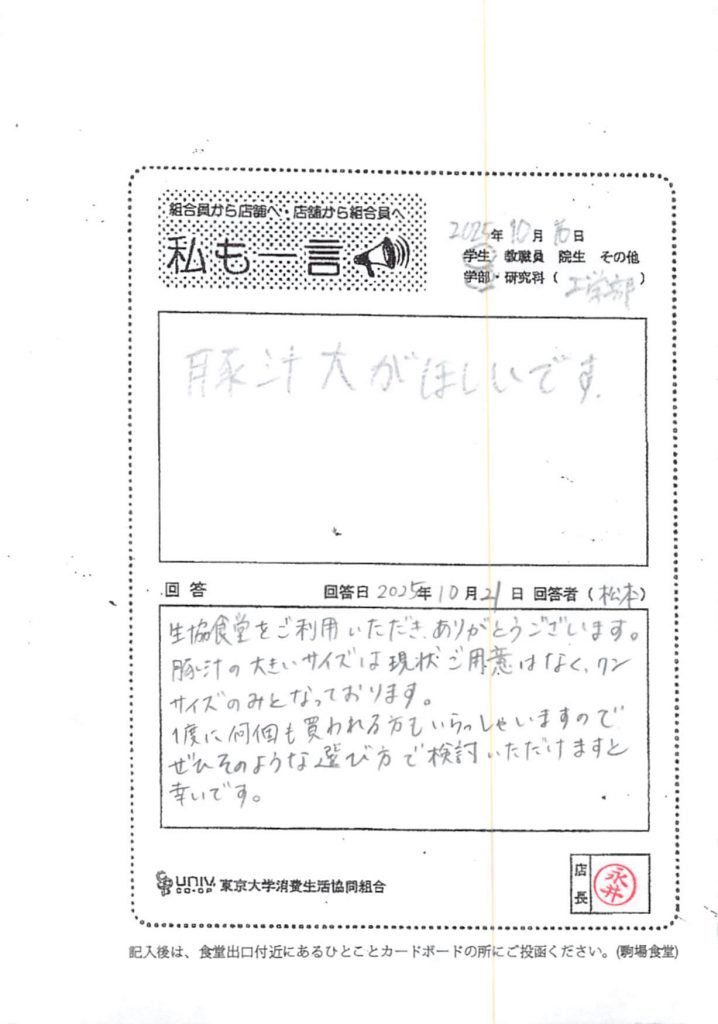 組合員から店舗へ・店舗から組合員へ
私も一言
2025年10月16日
学生 教職員 院生 その他
学部・研究科（工学部）
豚汁大がほしいです.
回答 回答日 2025年10月21日 回答者（松本）
生協食堂をご利用いただき、ありがとうございます。
豚汁の大きいサイズは現状ご用意はなく、ワン
サイズのみとなっております。
1度に何個も買われる方もいらっしゃいますので
ぜひそのような選び方で検討いただけますと
幸いです。
UNIV. CO-OP 東京大学消費生活協同組合
店長 永井
記入後は、食堂出口付近にあるひとことカードボードの所にご投函ください。(駒場食堂)